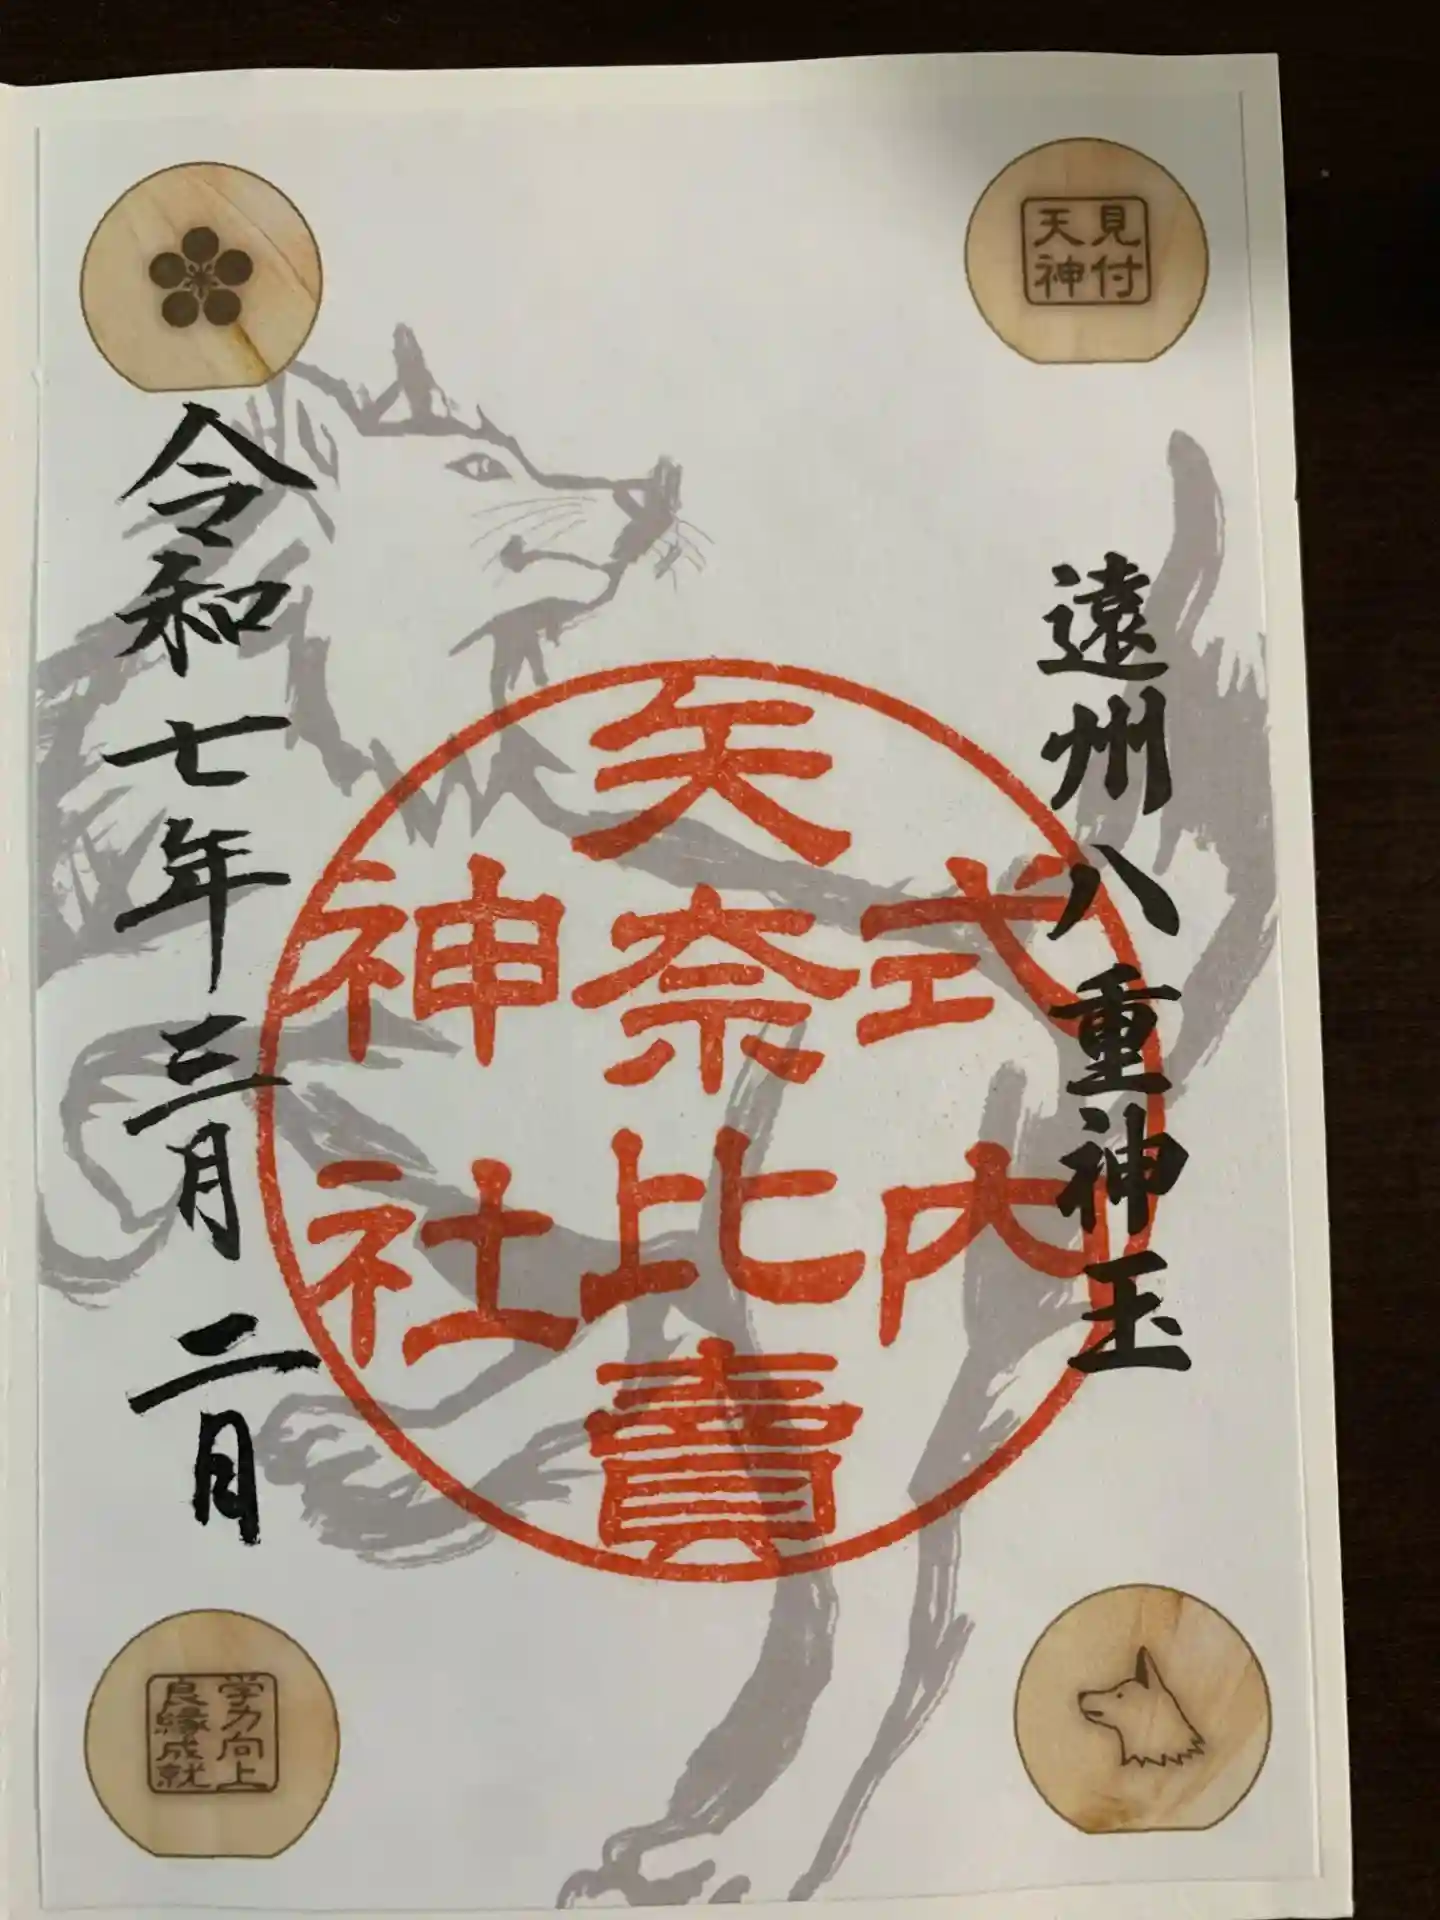 見付
天神
遠州八重神玉
式内
矢奈比賣
神社
令和七年三月二日
学力向上
良縁成就